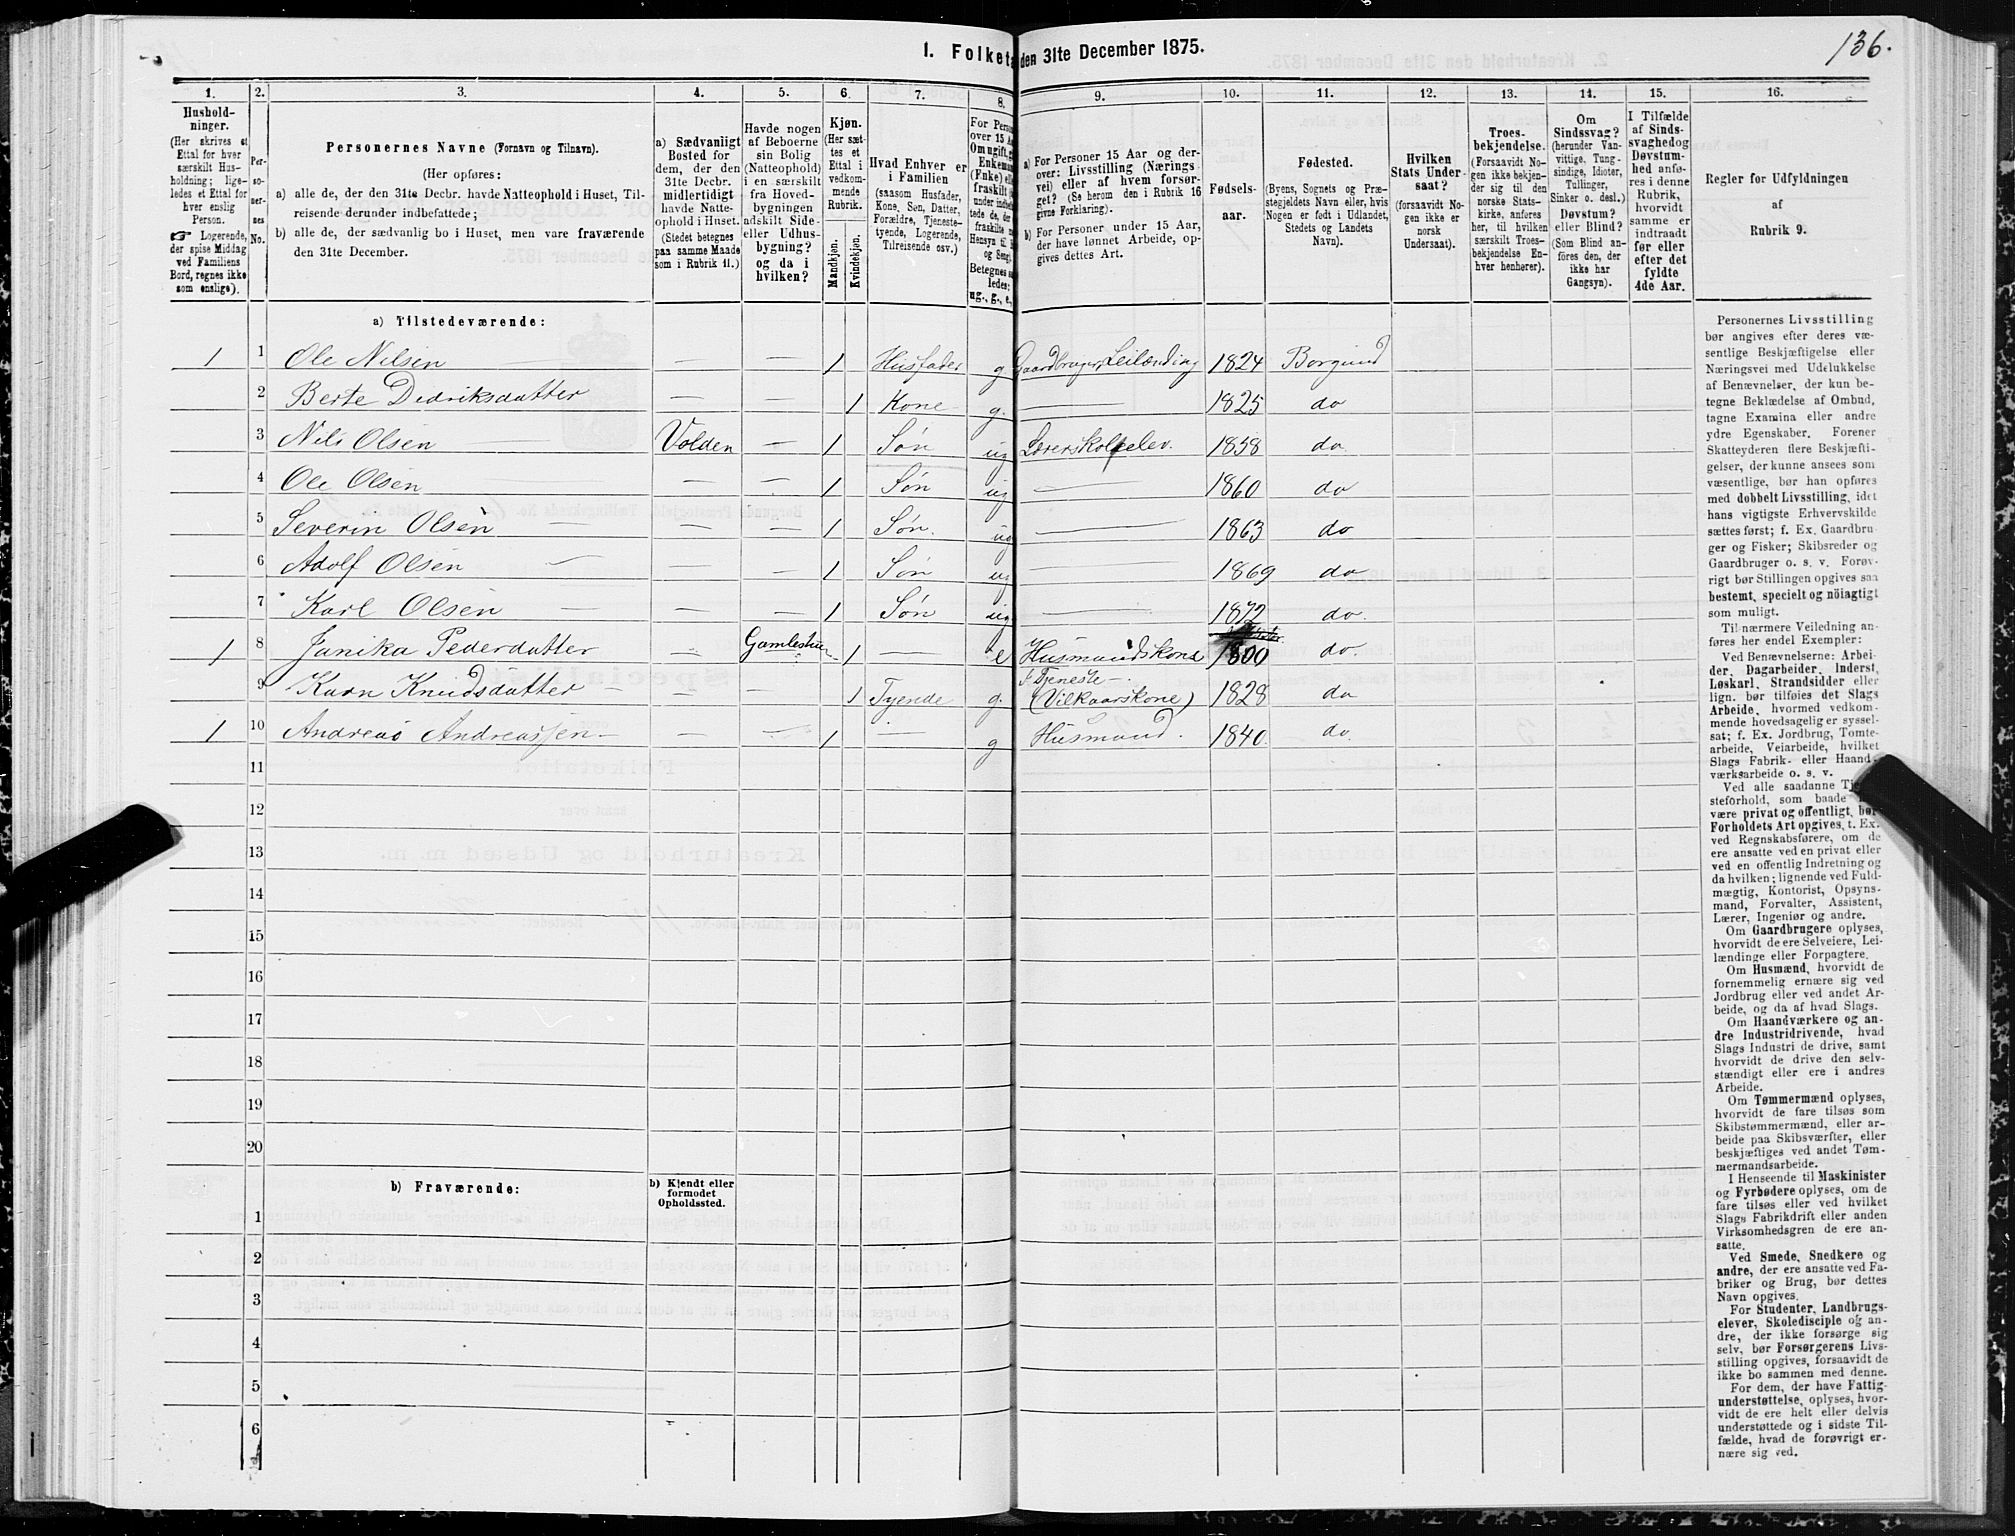 136.
1. Folketa den 31te December 1875.
1. 2. 3. 4. 5. 6. 7. 8. 9. 10. 11. 12. 13. 14. 15. 16.
Husholdninger.
(Her skrives et
Ettal for hver
særskilt Husholdning;
ligeledes et Ettal for
hver enslig
Person.
☞ Logerende,
der spise Middag
ved Familiens
Bord, regnes ikke
som enslige).
Personernes No.
Personernes Navne (Fornavn og Tilnavn).
(Her opføres:
a) alle de, der den 31te Decbr. havde Natteophold i Huset, Tilreisende
derunder indbefattede;
b) alle de, der sædvanlig bo i Huset, men vare fraværende
den 31te December.
a) Sædvanligt
Bosted for
dem, der den
31te Decbr.
midlertidigt
havde Natteophold
i Huset.
(Stedet betegnes
paa samme Maade
som i Rubrik 11.)
Havde nogen
af Beboerne
sin Bolig
(Natteophold)
i en særskilt
fra Hovedbygningen
adskilt Side-
eller Udhusbygning?
og da i
hvilken?
Kjøn.
(Her sættes
et
Ettal i
vedkommende
Rubrik.
Mandkjøn.
Kvindekjøn.
Hvad Enhver er
i Familien
(saasom Husfader,
Kone, Søn, Datter,
Forældre, Tjenestetyende,
Logerende,
Tilreisende osv.)
For Person
over 15 Aa
Om ugift, g
Enkema
(Enke) elle
fraskilt
Betegnes s
ledes:
ug., g., e,
a) For Personer 15 Aar og derover:
Livsstilling (Næringsvei)
eller af hvem forsørget?
(Se herom den i Rubrik 16
givne Forklaring).
b) For Personer under 15 Aar,
der have lønnet Arbeide, opgives
dettes Art.
Fødselsaar.
Fødested.
(Byens, Sognets og Præstegjeldets
Navn eller, hvis
Nogen er født i Udlandet,
Stedets og Landets
Navn).
Hvilken
Stats Undersaat?
(forsaavidt Nogen
ikke er
norsk
Undersaat).
Troesbekjendelse.
(Forsaavidt Nogen
ikke bekjender
sig til den
norske Statskirke,
anføres
her, til hvilken
særskilt Troesbekjendelse
Enhver
henhører).
Om
Sindssvag?
(herunder Vanvittige,
Tungsindige,
Idioter,
Tullinger,
Sinker o. desl.)
Døvstum?
eller Blind?
(Som Blind anføres
den, der
ikke har
Gangsyn).
I Tilfælde
af Sindssvaghed
og
Døvstumhed
anføres
i denne
Rubrik,
hvorvidt
samme er
indtraadt
før eller
efter det
fyldte
4de Aar.
Regler for Udfyldningen
af
Rubrik 9.
a) Tilstedeværende:
1 1 Ole Nilsen — — 1 Husfader g Gaardbruger, Leilænding 1824 Borgund
2 Berte Didriksdatter — — 1 Kone g. — 1825 do
3 Nils Olsen Volden — 1 Søn ug Lærerskolelev. 1858 do
4 Ole Olsen — — 1 Søn ug — 1860 do
5 Severin Olsen — — 1 Søn. ug — 1863 do
6 Adolf Olsen — — 1 Søn ug — 1869 do
7 Karl Olsen — — 1 Søn ug — 1872 do.
1 8 Janika Pederdatter — Gamlestue 1 — e Husmandskone 1800 do.
9 Karn Knudsdatter — — 1 Tyende g. f. Tjeneste — (Vilkaarskone) 1828 do
1 10 Andreas Andreassen — — 1 — g Husmand. 1840. do.
11
12
13
14
15
16
17
18
19
20
b) Fraværende:
b) Kjendt eller
formodet
Opholdssted.
1
2
3
4
5
6
Personernes Livsstilling
bør angives efter deres væsentlige
Beskjæftigelse eller
Næringsvei med Udelukkelse
af Benævnelser, der kun betegne
Beklædelse af Ombud,
tagne Examina eller andre
ydre Egenskaber. Forener
Skatteyderen flere Beskjæftigelser,
der kunne ansees som
væsentlige, bør han opføres
med dobbelt Livsstilling, idet
hans vigtigste Erhvervskilde
sættes først; f. Ex. Gaardbruger
og Fisker; Skibsreder og
Gaardbruger o. s. v. Forøvrigt
bør Stillingen opgives saa
bestemt, specielt og nöiagtigt
som muligt.
Til nærmere Veiledning anføres
her endel Exempler:
Ved Benævnelserne: Arbeider,
Dagarbeider, Inderst,
Løskarl, Strandsidder eller
lign. bør tilføies det Slags
Arbeide, hvormed vedkommende
hovedsagelig er sysselsat;
f. Ex. Jordbrug, Tomtearbeide,
Veiarbeide, hvilket
Slags Fabrik- eller Haandværksarbeide
o. s. v.
Ved alle saadanne Tjenesteforhold,
som baade
være privat og offentligt, bør
Forholdets Art opgives, t. Ex.
ved Regnskabsførere, om de
ere ansatte ved en privat eller
ved en offentlig Indretning og
da hvilken; lignende ved Fuldmægtig,
Kontorist, Opsynsmand,
Forvalter, Assistent,
Lærer, Ingeniør og andre.
Om Gaardbrugere oplyses,
hvorvidt de ere Selveiere, Leilændinge
eller Forpagtere.
Om Husmænd, hvorvidt de
fornemmelig ernære sig ved
Jordbrug eller ved andet Arbeide,
og da af hvad Slags.
Om Haandværkere og andre
Industridrivende, hvad
Slags Industri de drive, samt
hvorvidt de drive den selvstændigt
eller ere i andres
Arbeide.
Om Tømmermænd oplyses,
hvorvidt de fare tilsøs som
Skibstømmermænd, eller arbeide
paa Skibsværfter, eller
beskjæftiges ved andet Tømmermandsarbeide.
I Henseende til Maskinister
og Fyrbødere oplyses, om de
fare tilsøs eller ved hvilket
Slags Fabrikdrift eller anden
Virksomhedsgren de ere ansatte.
Ved Smede, Snedkere og
andre, der ere ansatte ved Fabriker
og Brug, bør dettes
Navn opgives.
For Studenter, Landbrugselever,
Skoledisciple og andre,
der ikke forsørge sig
selv, bør Forsørgerens Livsstilling
opgives, forsaavidt de
ikke bo sammen med denne.
For dem, der have Fattigunderstøttelse,
oplyses, hvorvidt
de ere helt eller delvis
understøttede og i sidste Tilfælde,
hvad de forøvrigt ernære
sig ved.